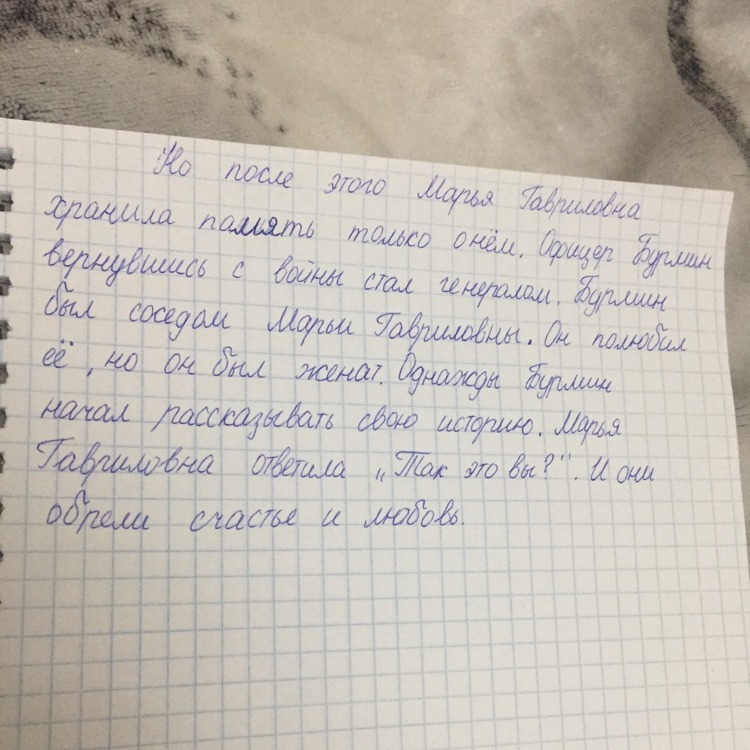 Но после этого Марья Гавриловна
хранила память только о нём. Офицер Бурмин
вернувшись с войны стал генералом. Бурмин
был соседом Марьи Гавриловны. Он полюбил
её, но он был женат. Однажды Бурмин
начал рассказывать свою историю. Марья
Гавриловна ответила „Так это вы?". И они
обрели счастье и любовь.